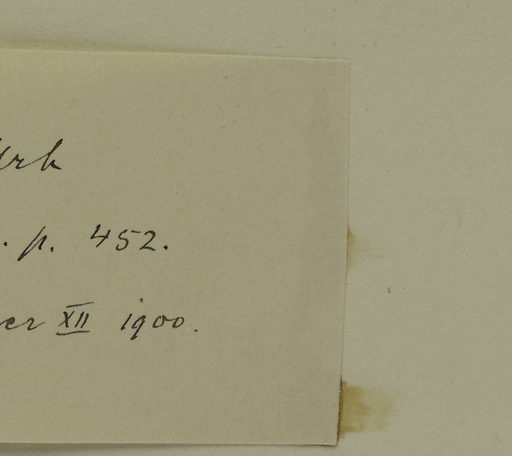 Urb
. p. 452.
er XII 1900.